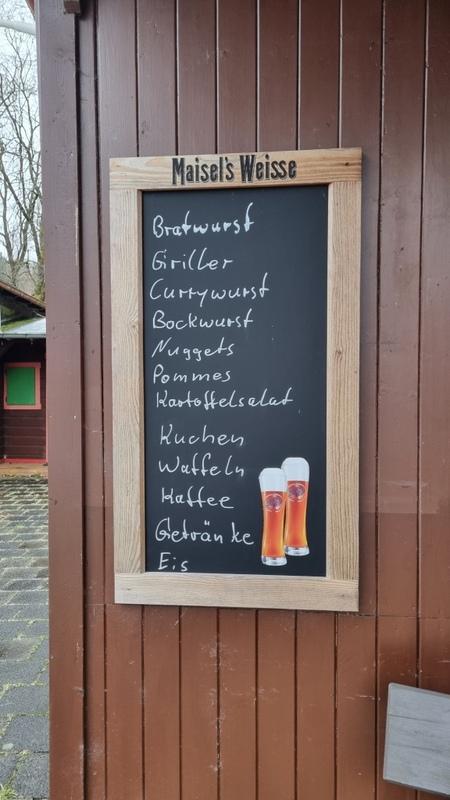 Maisel's Weisse
Bratwurst
Griller
Currywurst
Bockwurst
Nuggets
Pommes
Kartoffelsalat
Kuchen
Waffeln
Kaffee
Getränke
Eis